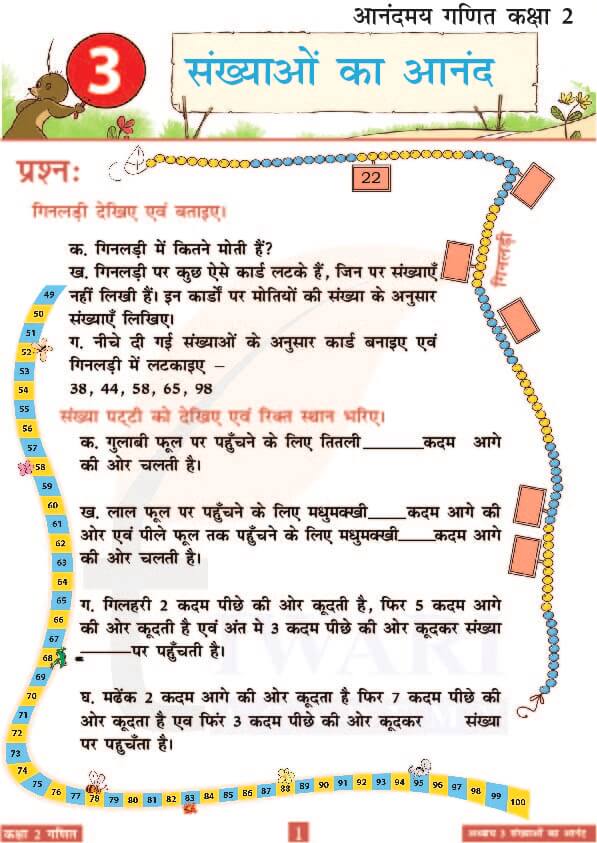 आनंदमय गणित कक्षा 2
3
संख्याओं का आनंद
प्रश्न:
22
गिनलड़ी देखिए एवं बताइए।
गिनलड़ी
क. गिनलड़ी में कितने मोती हैं?
ख. गिनलड़ी पर कुछ ऐसे कार्ड लटके हैं, जिन पर संख्याएँ
नहीं लिखी हैं। इन कार्डों पर मोतियों की संख्या के अनुसार
संख्याएँ लिखिए।
ग. नीचे दी गई संख्याओं के अनुसार कार्ड बनाइए एवं
गिनलड़ी में लटकाइए –
38, 44, 58, 65, 98
संख्या पट्टी को देखिए एवं रिक्त स्थान भरिए।
क. गुलाबी फूल पर पहुँचने के लिए तितली______कदम आगे
की ओर चलती है।
ख. लाल फूल पर पहुँचने के लिए मधुमक्खी____कदम आगे की
ओर एवं पीले फूल तक पहुँचने के लिए मधुमक्खी____कदम आगे
की ओर चलती है।
ग. गिलहरी 2 कदम पीछे की ओर कूदती है, फिर 5 कदम आगे
की ओर कूदती है एवं अंत मे 3 कदम पीछे की ओर कूदकर संख्या
______पर पहुँचती है।
घ. मढेंक 2 कदम आगे की ओर कूदता है फिर 7 कदम पीछे की
ओर कूदता है एव फिरं 3 कदम पीछे की ओर कूदकर संख्या
पर पहुचँता है।
49
50
51
52
53
54
55
56
57
58
59
60
61
62
63
64
65
66
67
68
69
70
71
72
73
74
75 76 77 78 79 80 81 82 83 84 85 86 87 88 89 90 91 92 93 94 95 96 97 98 99 100
TIWARI
कक्षा 2 गणित
1
अध्याय 3 संख्याओं का आनंद